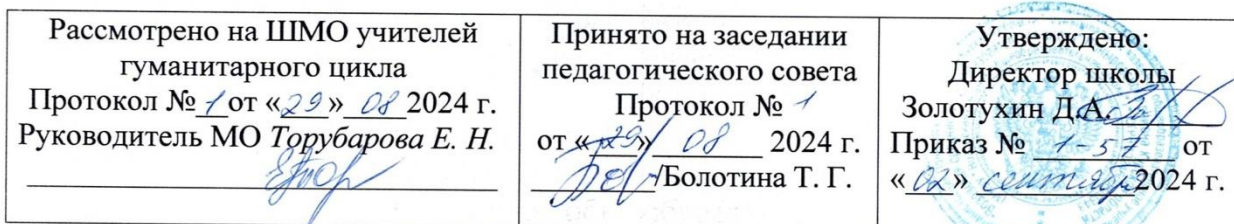 Рассмотрено на ШМО учителей
гуманитарного цикла
Протокол № 1 от «29» 08 2024 г.
Руководитель МО Торубарова Е. Н.
Принято на заседании
педагогического совета
Протокол № 1
от «29» 08 2024 г.
/Болотина Т. Г.
Утверждено:
Директор школы
Золотухин Д.А.
Приказ № 1-57 от
«02» сентября 2024 г.